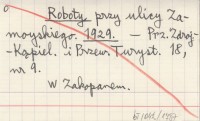 Roboty przy ulicy Za-
moyskiego. 1929. — Prz. Zdroj-
Kąpiel. i Przew. Turyst. 18,
nr 9.
W Zakopanem.